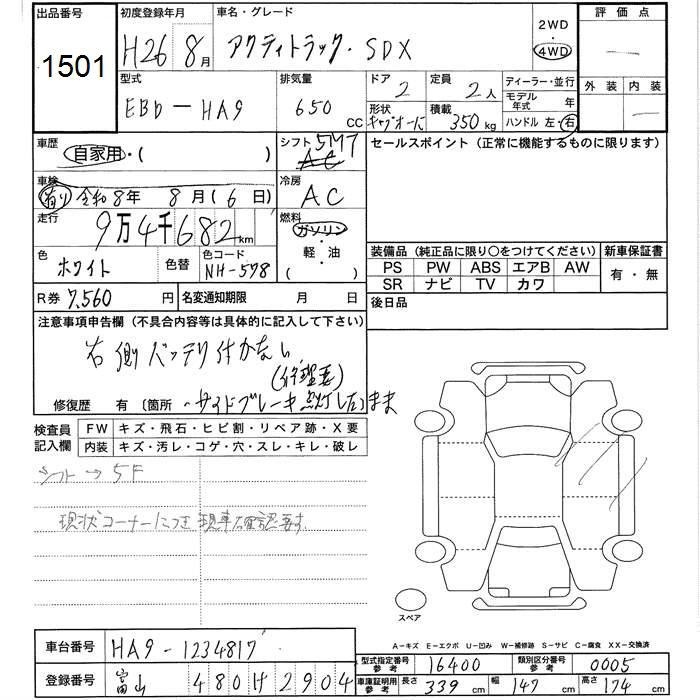 出品番号
1501
初度登録年月
H26 8月
車名・グレード
アクティトラック・SDX
2WD
・
4WD
評価点
—
型式
EBD-HA9
排気量
650 CC
ドア
2
定員
2人
ディーラー・並行
モデル年式 年
形状
積載
350kg
ハンドル 左・右
外装 内装
—
車歴
自家用・( )
シフト 5MT
冷房
AC
セールスポイント（正常に機能するものに限ります）
車検
有り 令和8年 8月(6日)
走行
9万4千682km
燃料
ガソリン
・
軽・油
( )
色
ホワイト
色替
色コード
NH-578
装備品（純正品に限り○をつけてください）
新車保証書
PS PW ABS エアB AW
有・無
SR ナビ TV カワ
R券 7,560円
名変通知期限 月 日
後日品
注意事項申告欄（不具合内容等は具体的に記入して下さい）
右側バッテリ付かない
(修理要)
修復歴 有〔箇所
サイドブレーキ点灯したまま
検査員
記入欄
FW キズ・飛石・ヒビ割・リペア跡・X要
内装 キズ・汚レ・コゲ・穴・スレ・キレ・破レ
シフト→5F
現状コーナーにつき現車確認要す
スペア
A－キズ E－エクボ U－凹み W－補修跡 S－サビ C－腐食 XX－交換済
車台番号 HA9-1234817
登録番号 富山 480け2904
型式指定番号
参考
16400
類別区分番号
参考
0005
車庫証明用
参考
長さ 339cm 幅 147cm 高さ 174cm